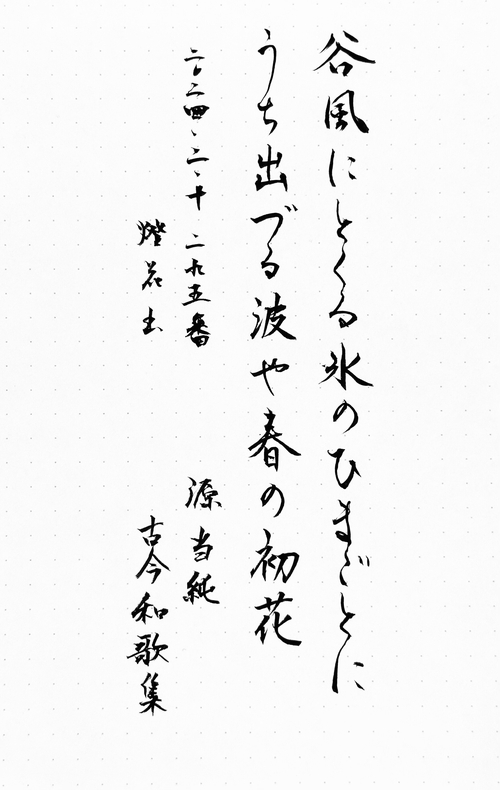 谷風にとくる氷のひまごとに
うち出づる波や春の初花
二〇二四、二、十 二九五番
源当純
燈花土
古今和歌集